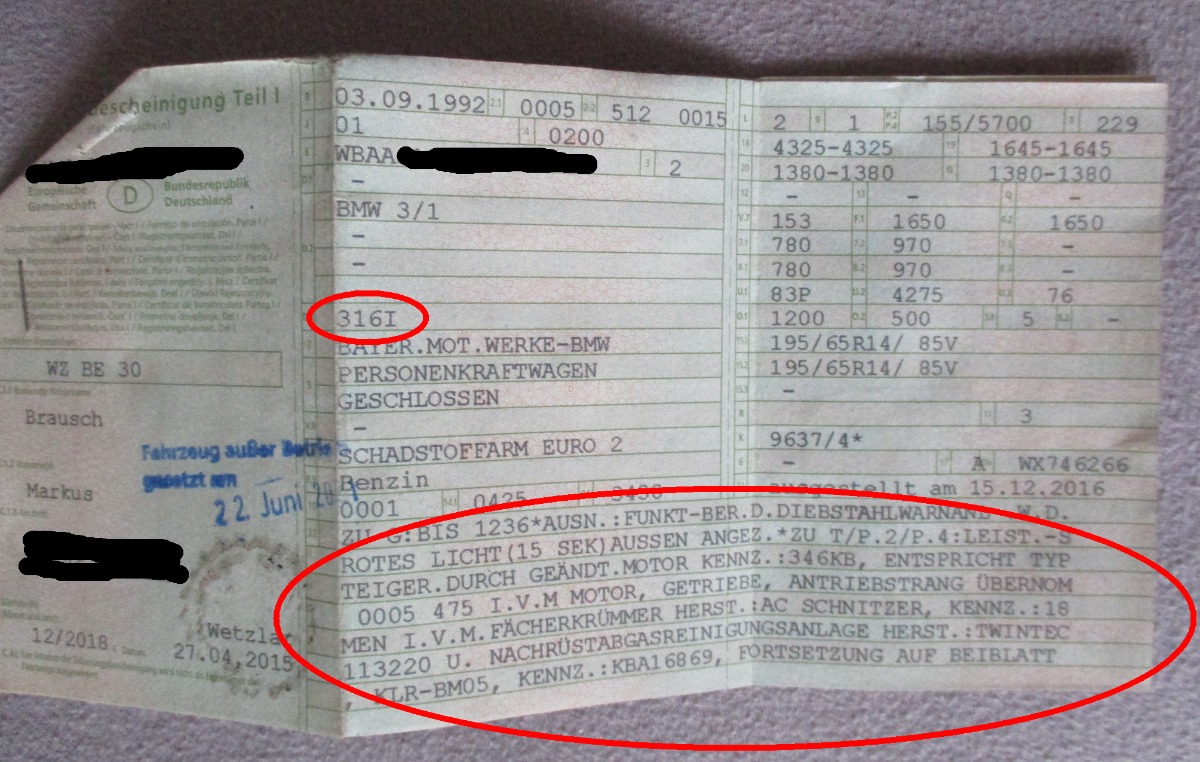 escheinigung Teil I
Europäische Gemeinschaft
D
Bundesrepublik Deutschland
WZ BE 30
Brausch
Markus
Fahrzeug außer
gesetzt am
22. Juni
12/2018
Wetzlar
27.04.2015
03.09.1992 2.1 0005 2.2 512 0015
01 0200
WBAA 2
–
BMW 3/1
–
–
316I
BAYER.MOT.WERKE-BMW
PERSONENKRAFTWAGEN
GESCHLOSSEN
–
SCHADSTOFFARM EURO 2
Benzin
0001 0425
2 1 155/5700 229
4325-4325 1645-1645
1380-1380 1380-1380
– – –
153 1650 1650
780 970 –
780 970 –
83P 4275 76
1200 500 5 –
195/65R14/ 85V
195/65R14/ 85V
–
3
9637/4*
– A WX746266
ausgestellt am 15.12.2016
ZU G:BIS 1236*AUSN.:FUNKT-BER.D.DIEBSTAHLWARNANL .W.D.
ROTES LICHT(15 SEK)AUSSEN ANGEZ.*ZU T/P.2/P.4:LEIST.-S
TEIGER.DURCH GEÄNDT.MOTOR KENNZ.:346KB, ENTSPRICHT TYP
0005 475 I.V.M MOTOR, GETRIEBE, ANTRIEBSTRANG ÜBERNOM
MEN I.V.M.FÄCHERKRÜMMER HERST.:AC SCHNITZER, KENNZ.:18
113220 U. NACHRÜSTABGASREINIGUNGSANLAGE HERST.:TWINTEC
, KLR-BM05, KENNZ.:KBA16869, FORTSETZUNG AUF BEIBLATT